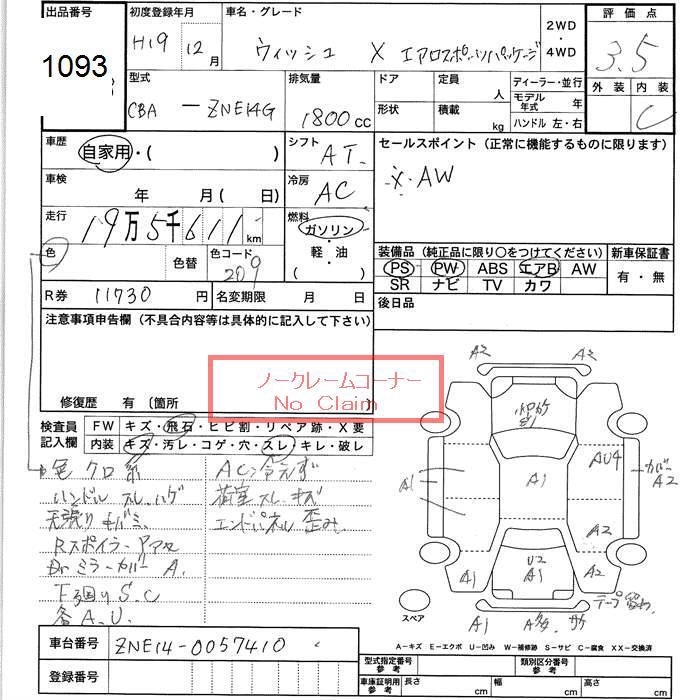 出品番号 初度登録年月 車名・グレード 2WD・4WD 評価点
1093 H19 12月 ウィッシュ X エアロスポーツパッケージ 3.5
外装 内装
C
型式 排気量 ドア 定員 人 ディーラー・並行
CBA - ZNE14G 1800cc 形状 積載 kg モデル年式 年
ハンドル 左・右
車歴 自家用・( ) シフト AT セールスポイント (正常に機能するものに限ります)
車検 年 月( 日) 冷房 AC X・AW
走行 19万5千611km 燃料 ガソリン・軽・油 ( )
色 色替 色コード 209
装備品 (純正品に限り○をつけてください) 新車保証書
PS PW ABS エアB AW 有・無
SR ナビ TV カワ
R券 11730円 名変期限 月 日 後日品
注意事項申告欄 (不具合内容等は具体的に記入して下さい)
ノークレームコーナー
No Claim
修復歴 有 〔箇所
検査員記入欄 FW キズ・飛石・ヒビ割・リペア跡・X要
内装 キズ・汚レ・コゲ・穴・スレ・キレ・破レ
色 クロ系 AC冷えず
ハンドル スレ ハゲ 荷室 スレ キズ
天張り エンドパネル 歪み
Rスポイラー
Drミラーカバー A.
下回り S.C
各A.U.
A2 A2
A1 A1 AU4 カバー A2
A2
A1 U2 A1 A2
A1
スペア
A-キズ E-エクボ U-凹み W-補修跡 S-サビ C-腐食 XX-交換済
車台番号 ZNE14-0057410
登録番号
型式指定番号 参考 類別区分番号 参考
車庫証明用 参考 長さ cm 幅 cm 高さ cm